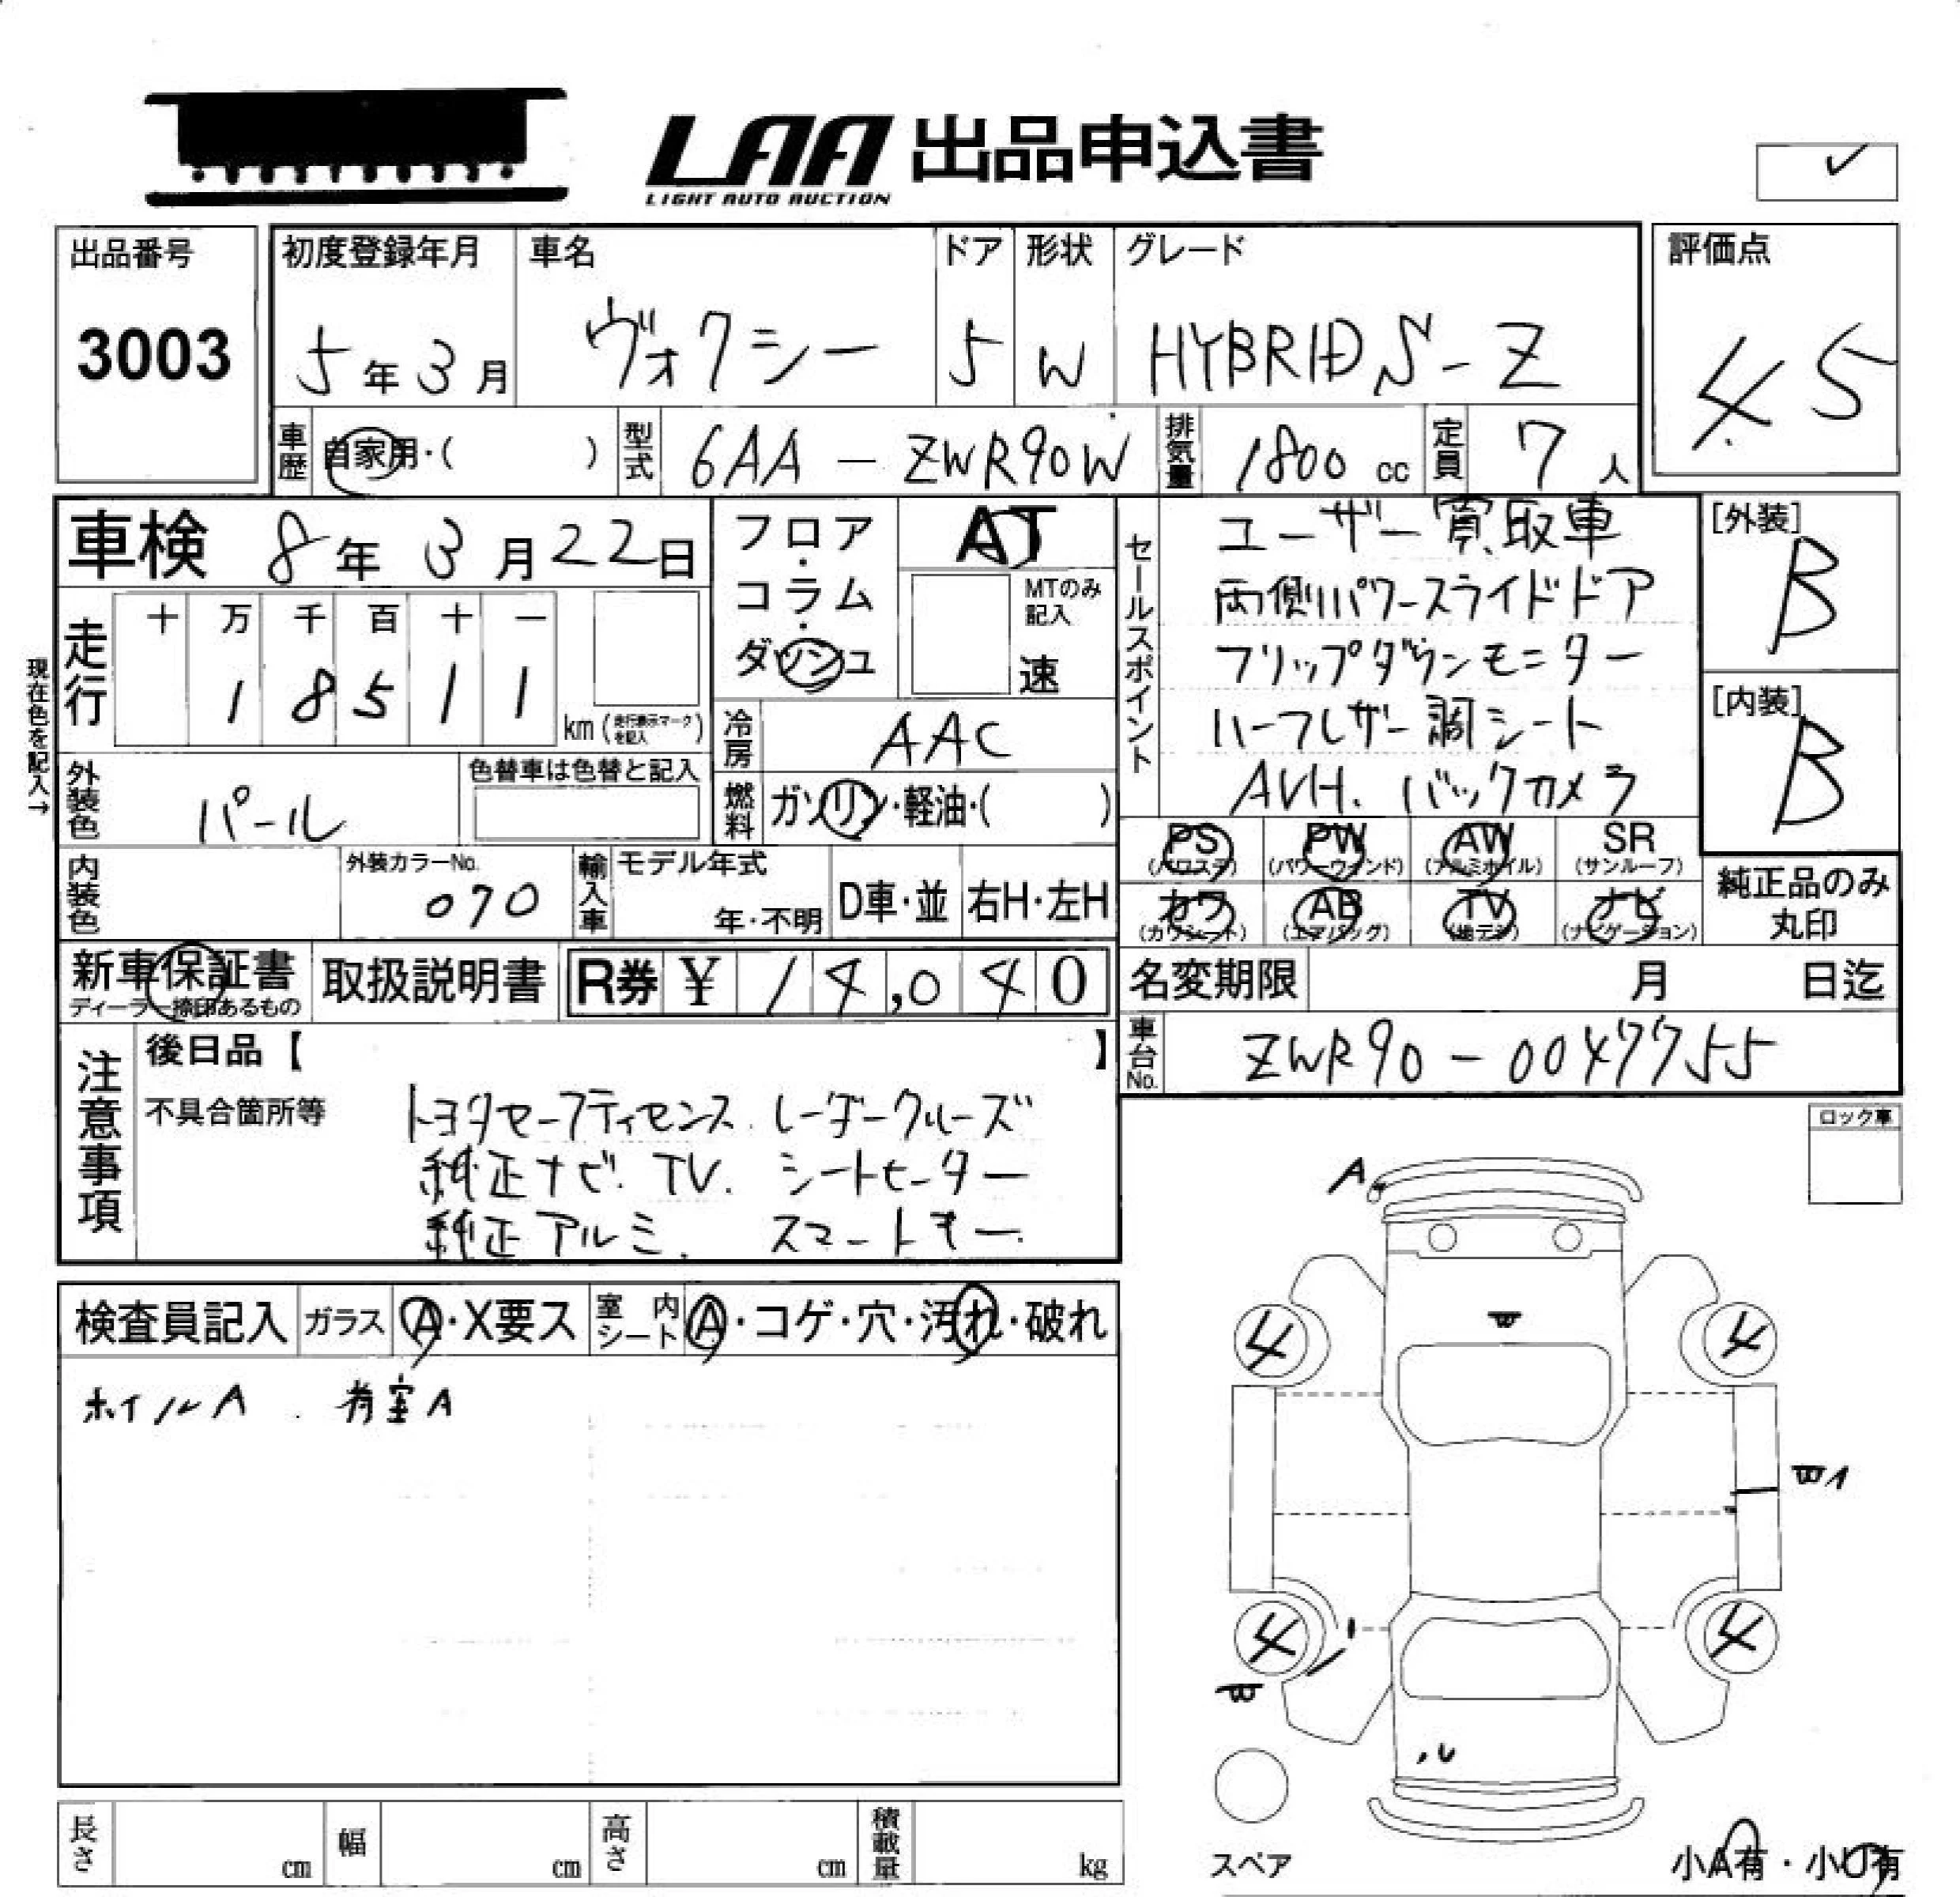 LAA 出品申込書
LIGHT AUTO AUCTION
出品番号
3003
初度登録年月
5年3月
車名
ヴォクシー
ドア
5
形状
W
グレード
HYBRID S-Z
評価点
4.5
車歴 自家用・( )
型式 6AA-ZWR90W
排気量 1800cc
定員 7人
車検 8年3月22日
走行
十 万 千 百 十 一
1 8 5 1 1
km(走行表示マークを記入)
現在色を記入→
外装色 パール
色替車は色替と記入
内装色
外装カラーNo.
070
フロア・コラム・ダッシュ
AT
MTのみ記入
速
冷房 AAC
燃料 ガソリン・軽油・( )
輸入車
モデル年式
年・不明
D車・並
右H・左H
セールスポイント
ユーザー買取車
両側パワースライドドア
フリップダウンモニター
ハーフレザー調シート
AVH. バックカメラ
[外装]
B
[内装]
B
PS (パワステ)
PW (パワーウィンド)
AW (アルミホイル)
SR (サンルーフ)
カワ (カワシート)
AB (エアバッグ)
TV (地デジ)
ナビ (ナビゲーション)
純正品のみ
丸印
新車保証書
ディーラー捺印あるもの
取扱説明書
R券 ¥14,040
名変期限 月 日迄
車台No. ZWR90-0047755
注意事項
後日品【 】
不具合箇所等
トヨタセーフティセンス. レーダークルーズ
純正ナビ. TV. シートヒーター
純正アルミ. スマートキー.
検査員記入
ガラス A・X要ス
室内シート A・コゲ・穴・汚れ・破れ
ホイルA. 荷室A
ロック車
A
W
4
4
W1
4
4
W
U
スペア
小A有・小U有
長さ cm
幅 cm
高さ cm
積載量 kg